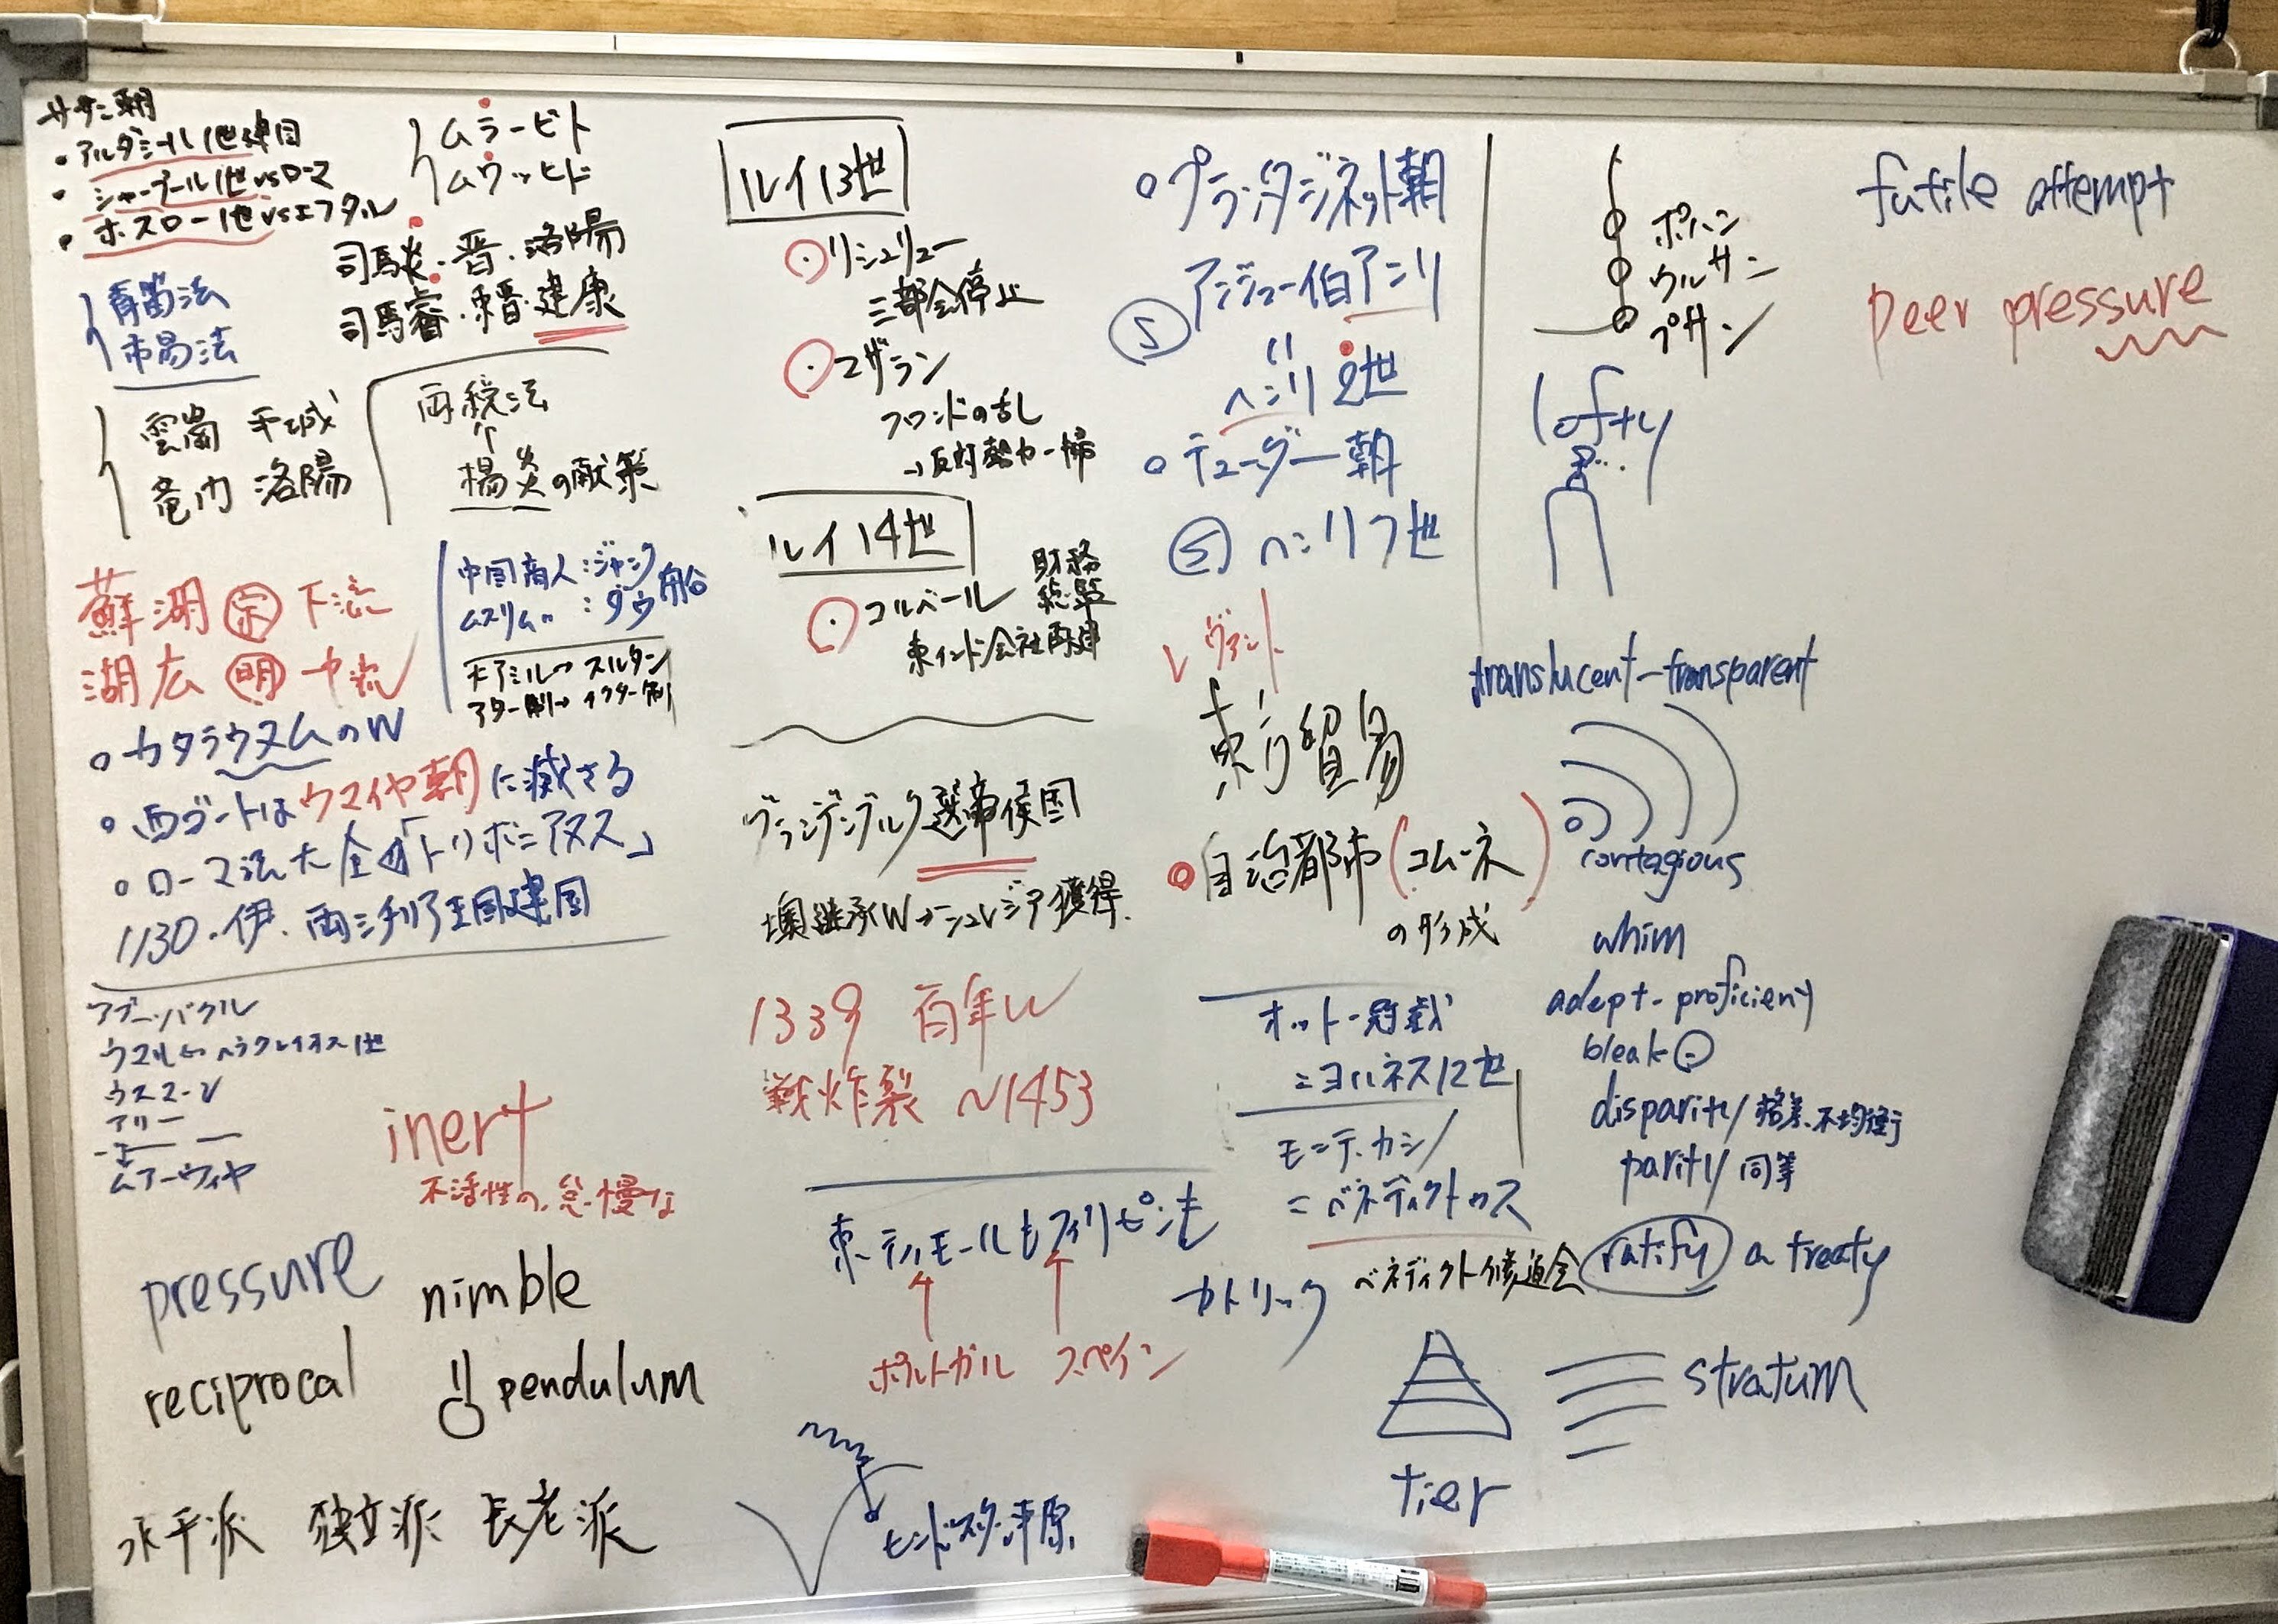 ササン朝
・アルダシール1世建国
・シャープール1世vsローマ
・ホスロー1世vsエフタル
ムラービト
ムワッヒド
司馬炎・晋・洛陽
司馬睿・東晋・建康
青苗法
市易法
雲崗 平城
竜門 洛陽
両税法
楊炎の献策
蘇湖 宋 下流
湖広 明 中流
中国商人:ジャンク船
ムスリム〃:ダウ
大アミール→スルタン
アター制→イクター制
○カタラウヌムのW
○西ゴートはウマイヤ朝に滅さる
○ローマ法大全「トリボニアヌス」
1130・伊・両シチリア王国建国
アブー・バクル
ウマル← ヘラクレイオス1世
ウスマーン
アリー
ムアーウィヤ
inert
不活性の、怠慢な
pressure
nimble
reciprocal
pendulum
水平派 独立派 長老派
ルイ13世
リシュリュー
三部会停止
マザラン
フロンドの乱
→反対勢力一掃
ルイ14世
コルベール 財務総監
東インド会社再建
ブランデンブルク選帝侯国
墺継承W→シュレジア獲得.
1339 百年W
戦炸裂 ~1453
東ティモールもフィリピンも
カトリック
ポルトガル スペイン
ヒンドスタン平原
○プランタジネット朝
アンジュー伯アンリ
S
〃
ヘンリ2世
○テューダー朝
S ヘンリ7世
レヴァント
東方貿易
自治都市(コムーネ)
の形成
オットー冠戴
=ヨハネス12世
モンテ・カシノ
=ベネディクトゥス
ベネディクト修道会
ポハン
ウルサン
プサン
lofty
translucent-transparent
contagious
whim
adept-proficieny
bleak
disparity/格差、不均衡
parity/同等
ratify a treaty
tier
stratum
futile attempt
peer pressure